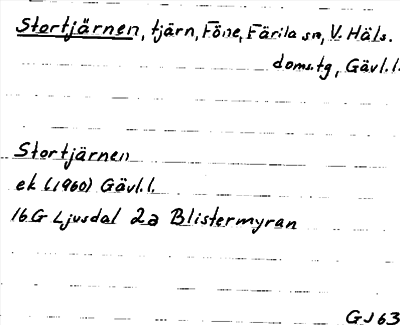 Stortjärnen, tjärn, Föne, Färila sn, V. Häls.
doms.tg, Gävl.l.
Stortjärnen
ek (1960) Gävl.l.
16G Ljusdal 2a Blistermyran
GJ63